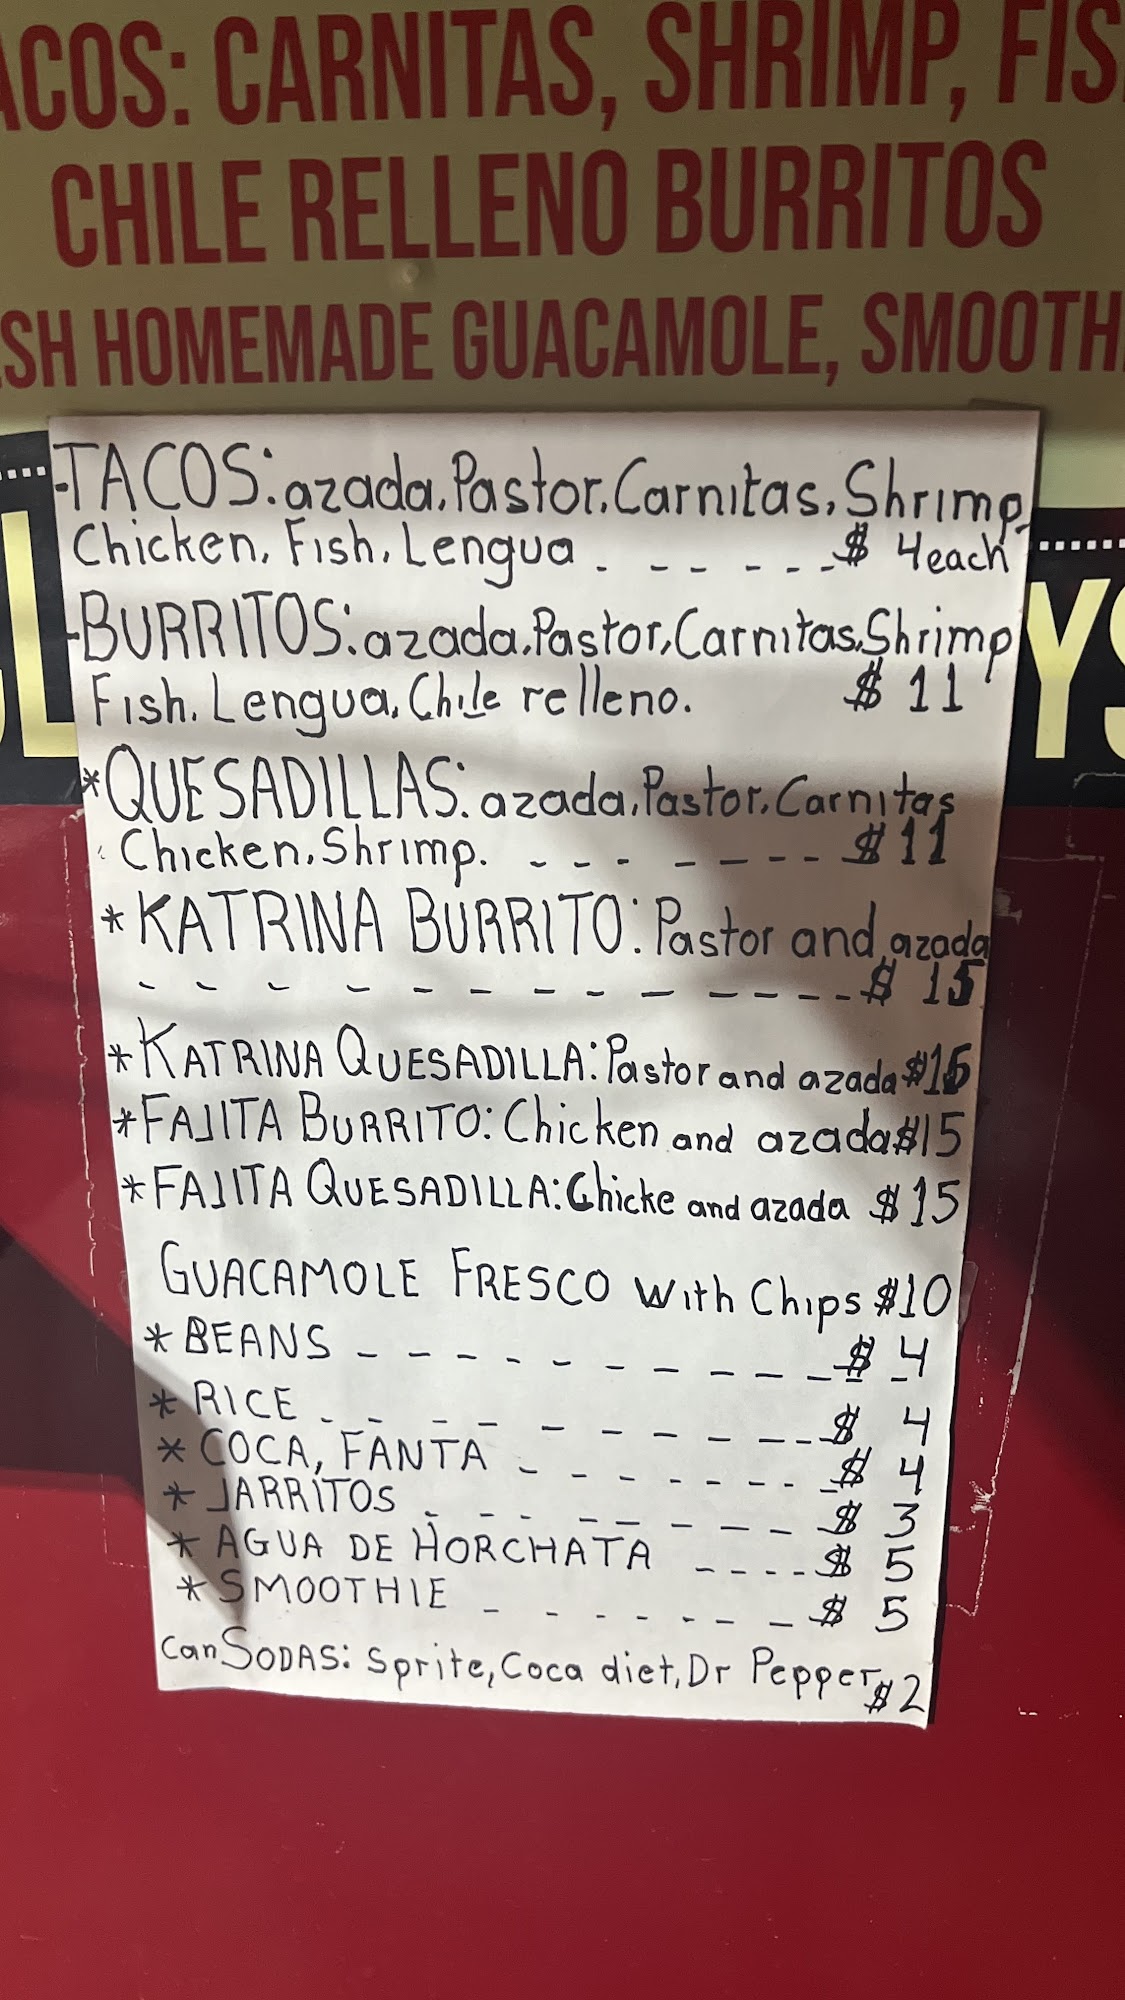 ACOS: CARNITAS, SHRIMP, FIS
CHILE RELLENO BURRITOS
SH HOMEMADE GUACAMOLE, SMOOTH
-TACOS: azada, Pastor, Carnitas, Shrimp
Chicken, Fish, Lengua . _ _ _ _ _ _ $ 4 each
-BURRITOS: azada, Pastor, Carnitas, Shrimp
Fish, Lengua, Chile relleno. $ 11
*QUESADILLAS: azada, Pastor, Carnitas
Chicken, Shrimp. _ _ _ _ _ _ _ $ 11
* KATRINA BURRITO: Pastor and azada
_ _ _ _ _ _ _ _ _ _ _ _ _ $ 15
*KATRINA QUESADILLA: Pastor and azada $15
*FAJITA BURRITO: Chicken and azada $15
*FAJITA QUESADILLA: Chicke and azada $15
GUACAMOLE FRESCO with Chips $10
* BEANS _ _ _ _ _ _ _ _ _ _ $ 4
* RICE _ _ _ _ _ _ _ _ _ $ 4
* COCA, FANTA _ _ _ _ _ _ _ $ 4
* JARRITOS _ _ _ _ _ _ _ _ $ 3
* AGUA DE HORCHATA _ _ _ _ $ 5
* SMOOTHIE _ _ _ _ _ _ _ $ 5
can SODAS: Sprite, Coca diet, Dr Pepper $2